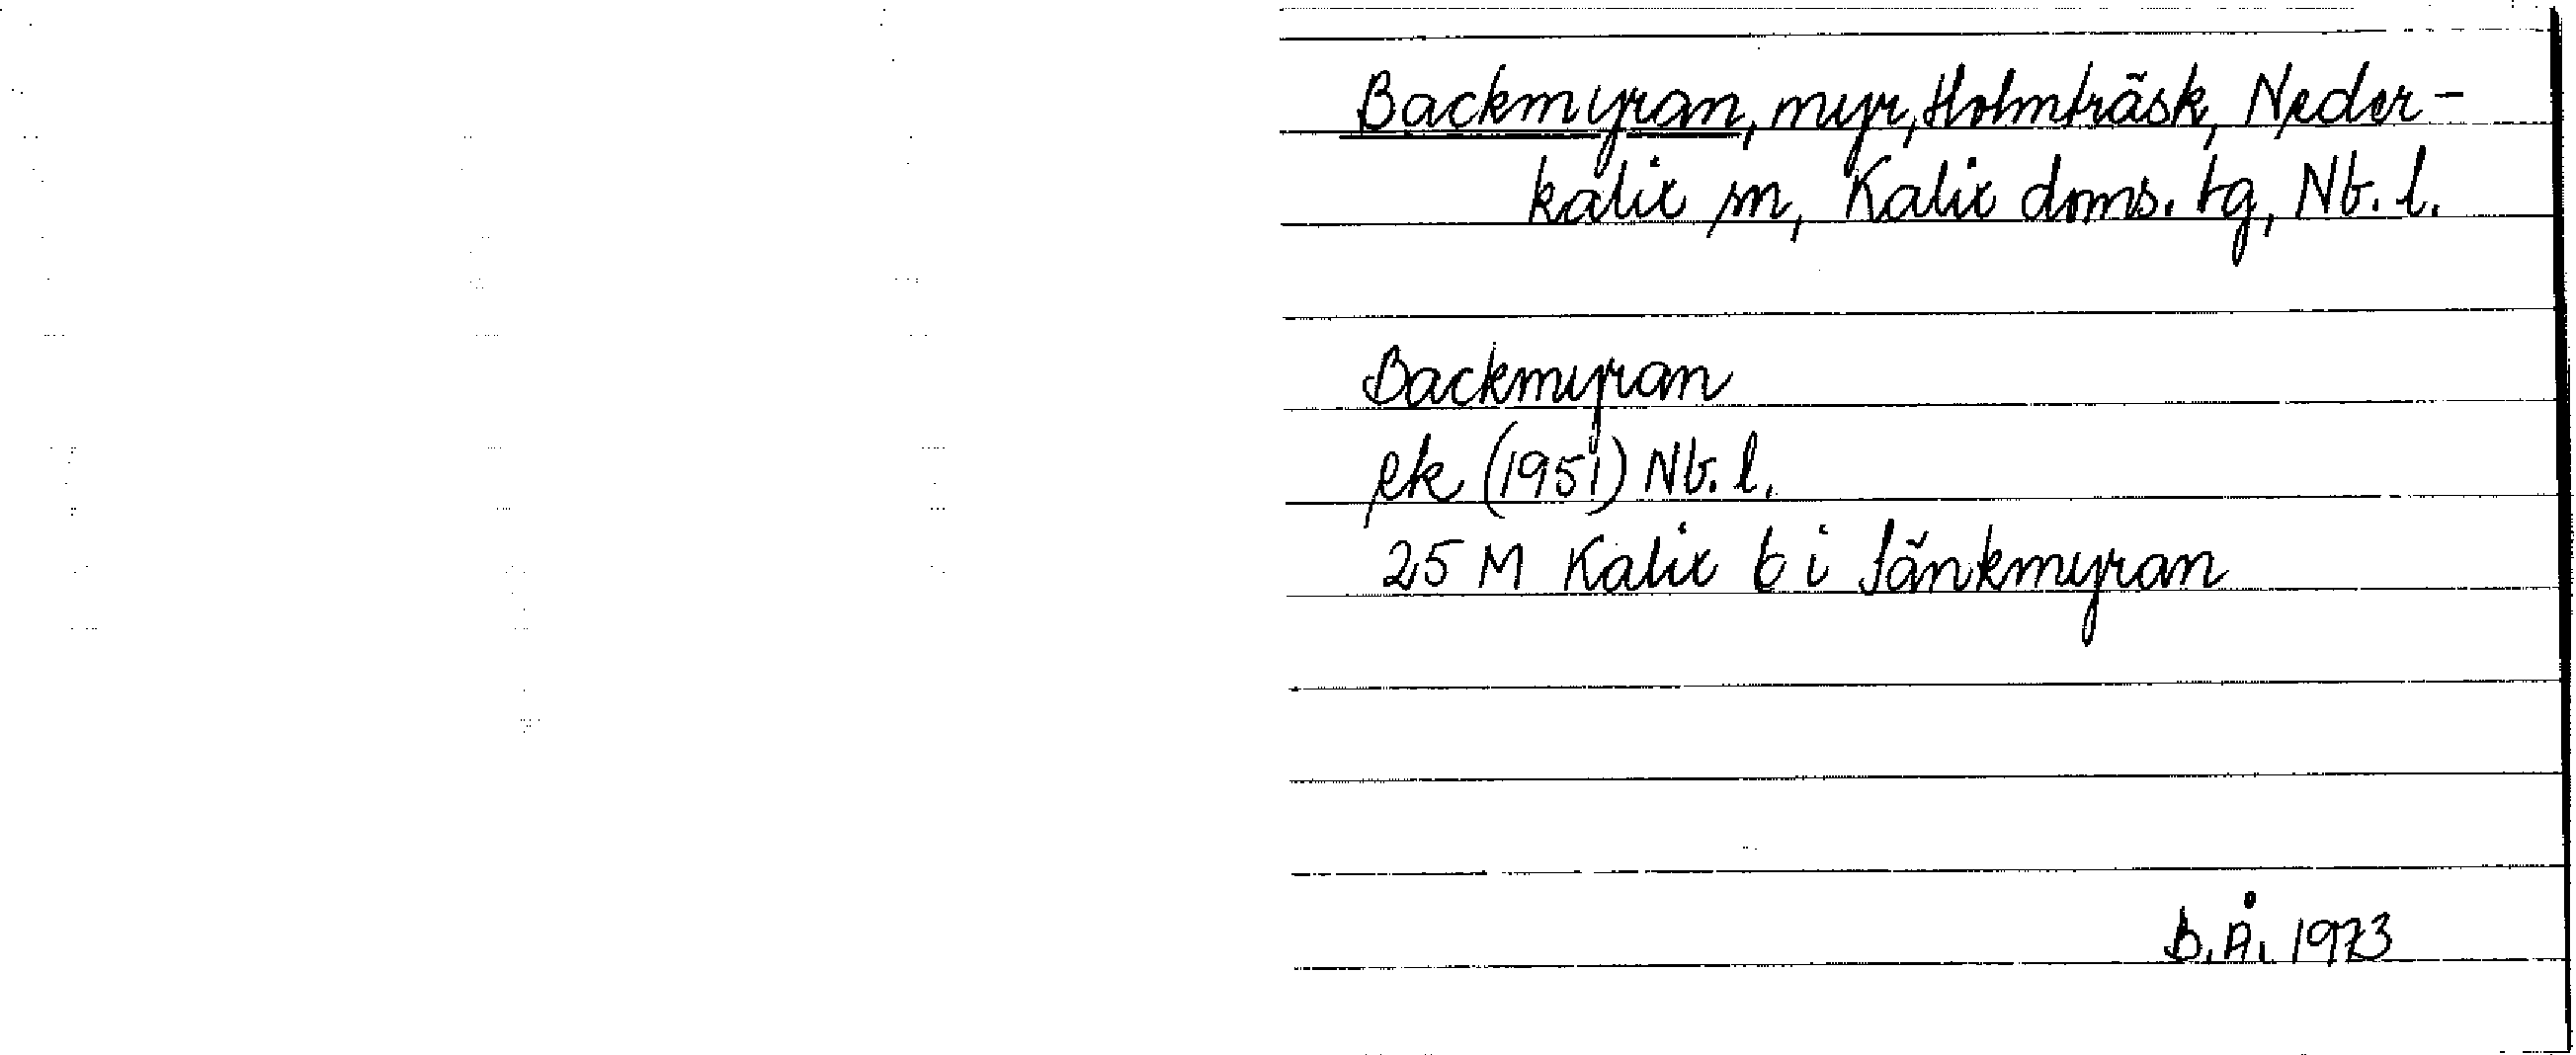 Backmyran, myr, Holmträsk, Neder-
kalix sn, Kalix doms. tg, Nb. l.
Backmyran
ek (1951) Nb. l.
25 M Kalix b i Sänkmyran
B.Å. 1973